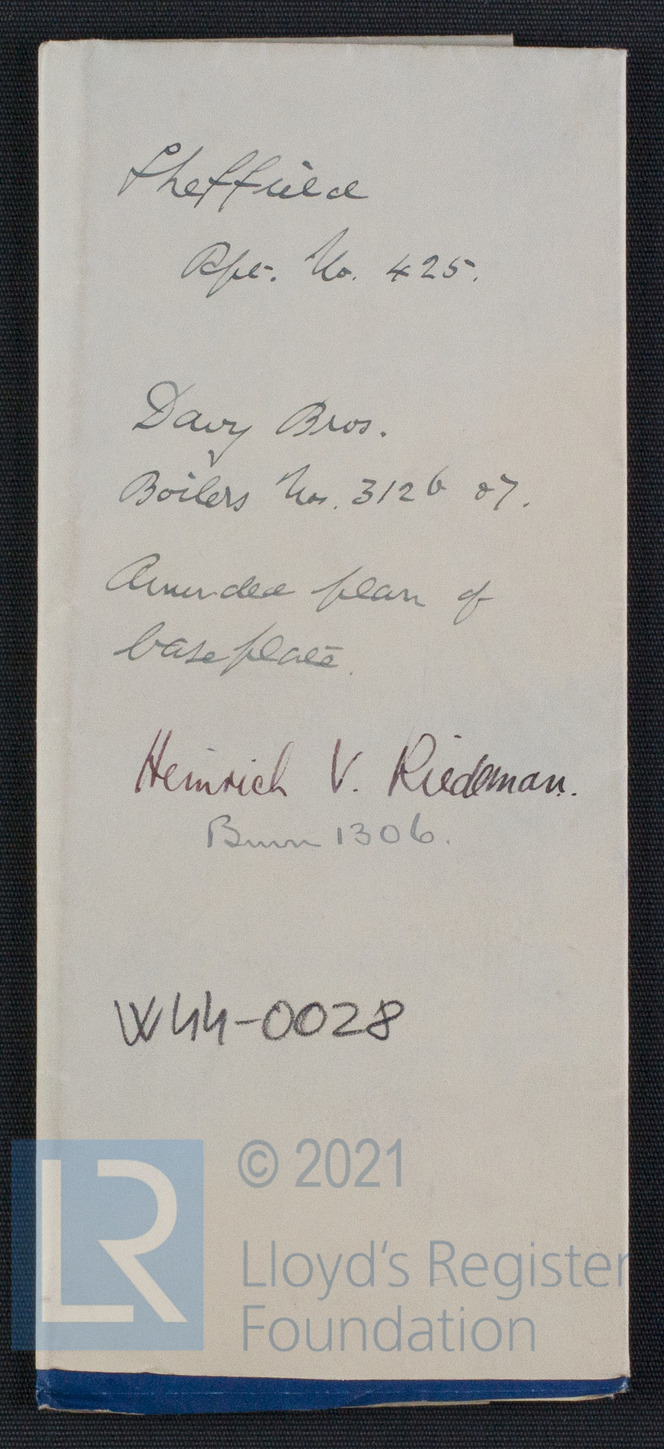 Sheffield
Rpt. No. 425.
Davy Bros.
Boilers Nos. 3126 & 7.
Amended plan of
baseplate.
Heinrich V. Riedeman.
1306.
W44-0028
LR
© 2021
Lloyd's Register
Foundation